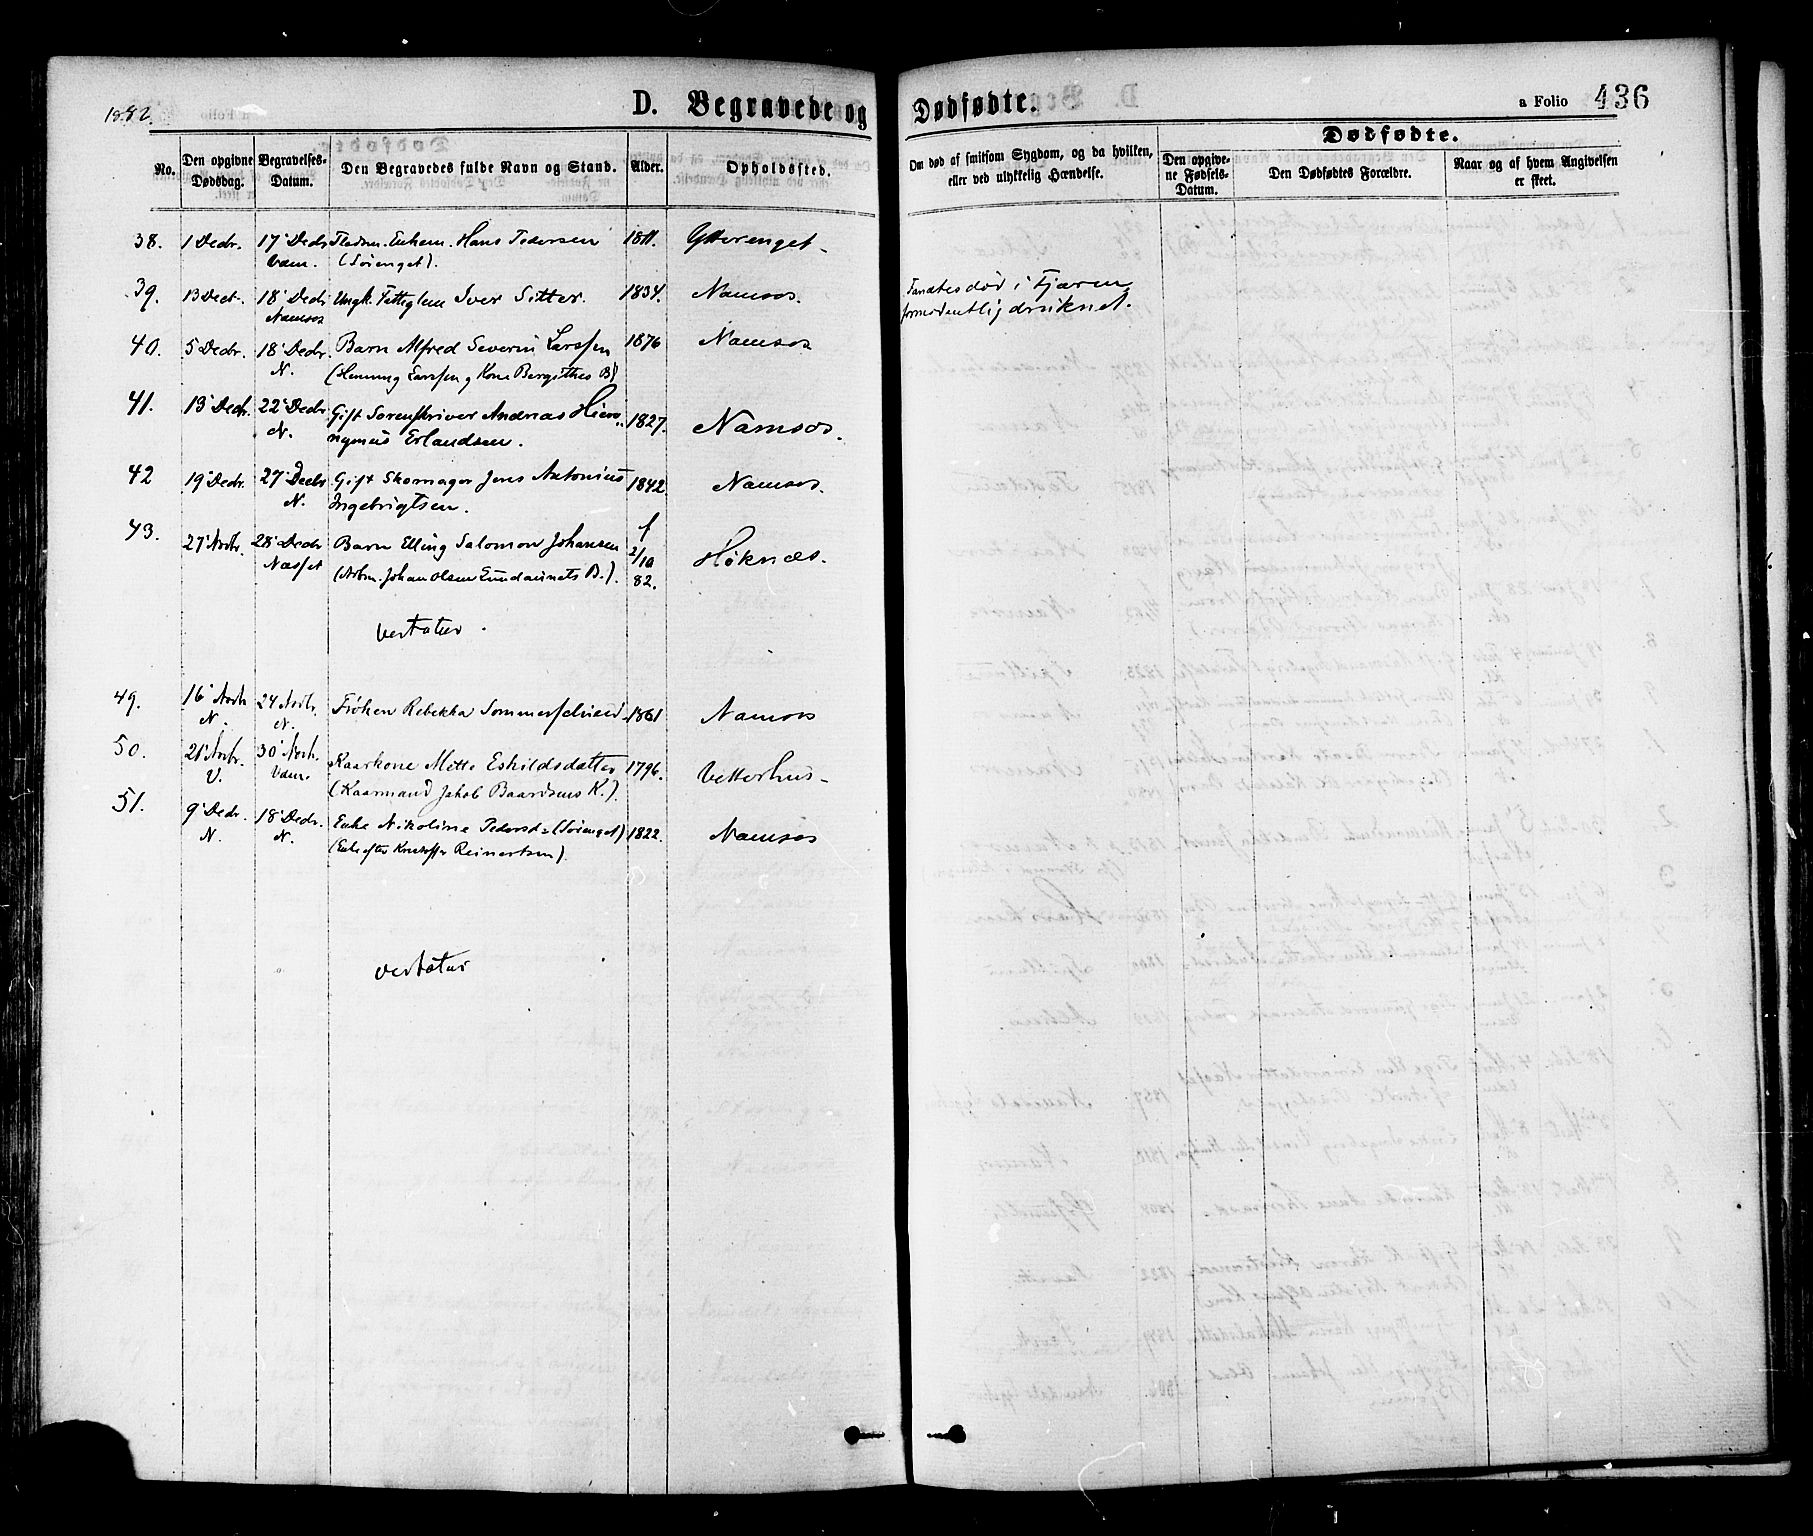 1882.
D. Begravede og Dødfødte.
a Folio 436
No.
Den opgivne Dødsdag.
Begravelses-Datum.
Den Begravedes fulde Navn og Stand.
Alder.
Opholdssted.
Om død af smitsom Sygdom, og da hvilken, eller ved ulykkelig Hændelse.
Dødfødte.
Den opgivne Fødsels-Datum.
Den Dødfødtes Forældre.
Naar og af hvem Angivelsen er skeet.
38. 1 Decbr. 17 Decbr Enkem. Hans Pedersen 1811. Ytterenget
Vem. (Sørenget).
39. 13 Decbr. 18 Decbr Ungk. Fattiglem Iver Sitter. 1834. Namsos. Fandtes død i Fjæren,
Namsos formodentlig druknet.
40. 5 Decbr. 18 Decbr. Barn Alfred Severin Larssen 1876 Namsos
N. (Henning Larssen og Kone Bergithes B)
41. 13 Decbr. 22 Decbr Gift Sorenskriver Andreas Hiero- 1827. Namsos.
N. nymus Erlandsen.
42 19 Decbr. 27 Decbr Gift Skomager Jens Antonius 1842. Namsos.
N. Ingebrigtsen.
43. 27 Novbr. 28 Decbr Barn Elling Salomon Johansen f 2/10 82. Høknæs.
Næsset (Arbm. Johan Olsen B.).
vertatur.
49. 16 Novbr 24 Novbr. Frøken Rebekka Sommerschield 1861 Namsos
N. N.
50. 21 Novbr. 30 Novbr. Kaarkone Mette Eskildsdatter 1796. Vetterhus
V. Vem. (Kaarmand Jakob Baardsens K.).
51. 9 Decbr. 18 Decbr. Enke Nikoline Pedersd. (Sørenget) 1822. Namsos
N. N. (Enke efter Kristoffer Reinertsen).
vertatur